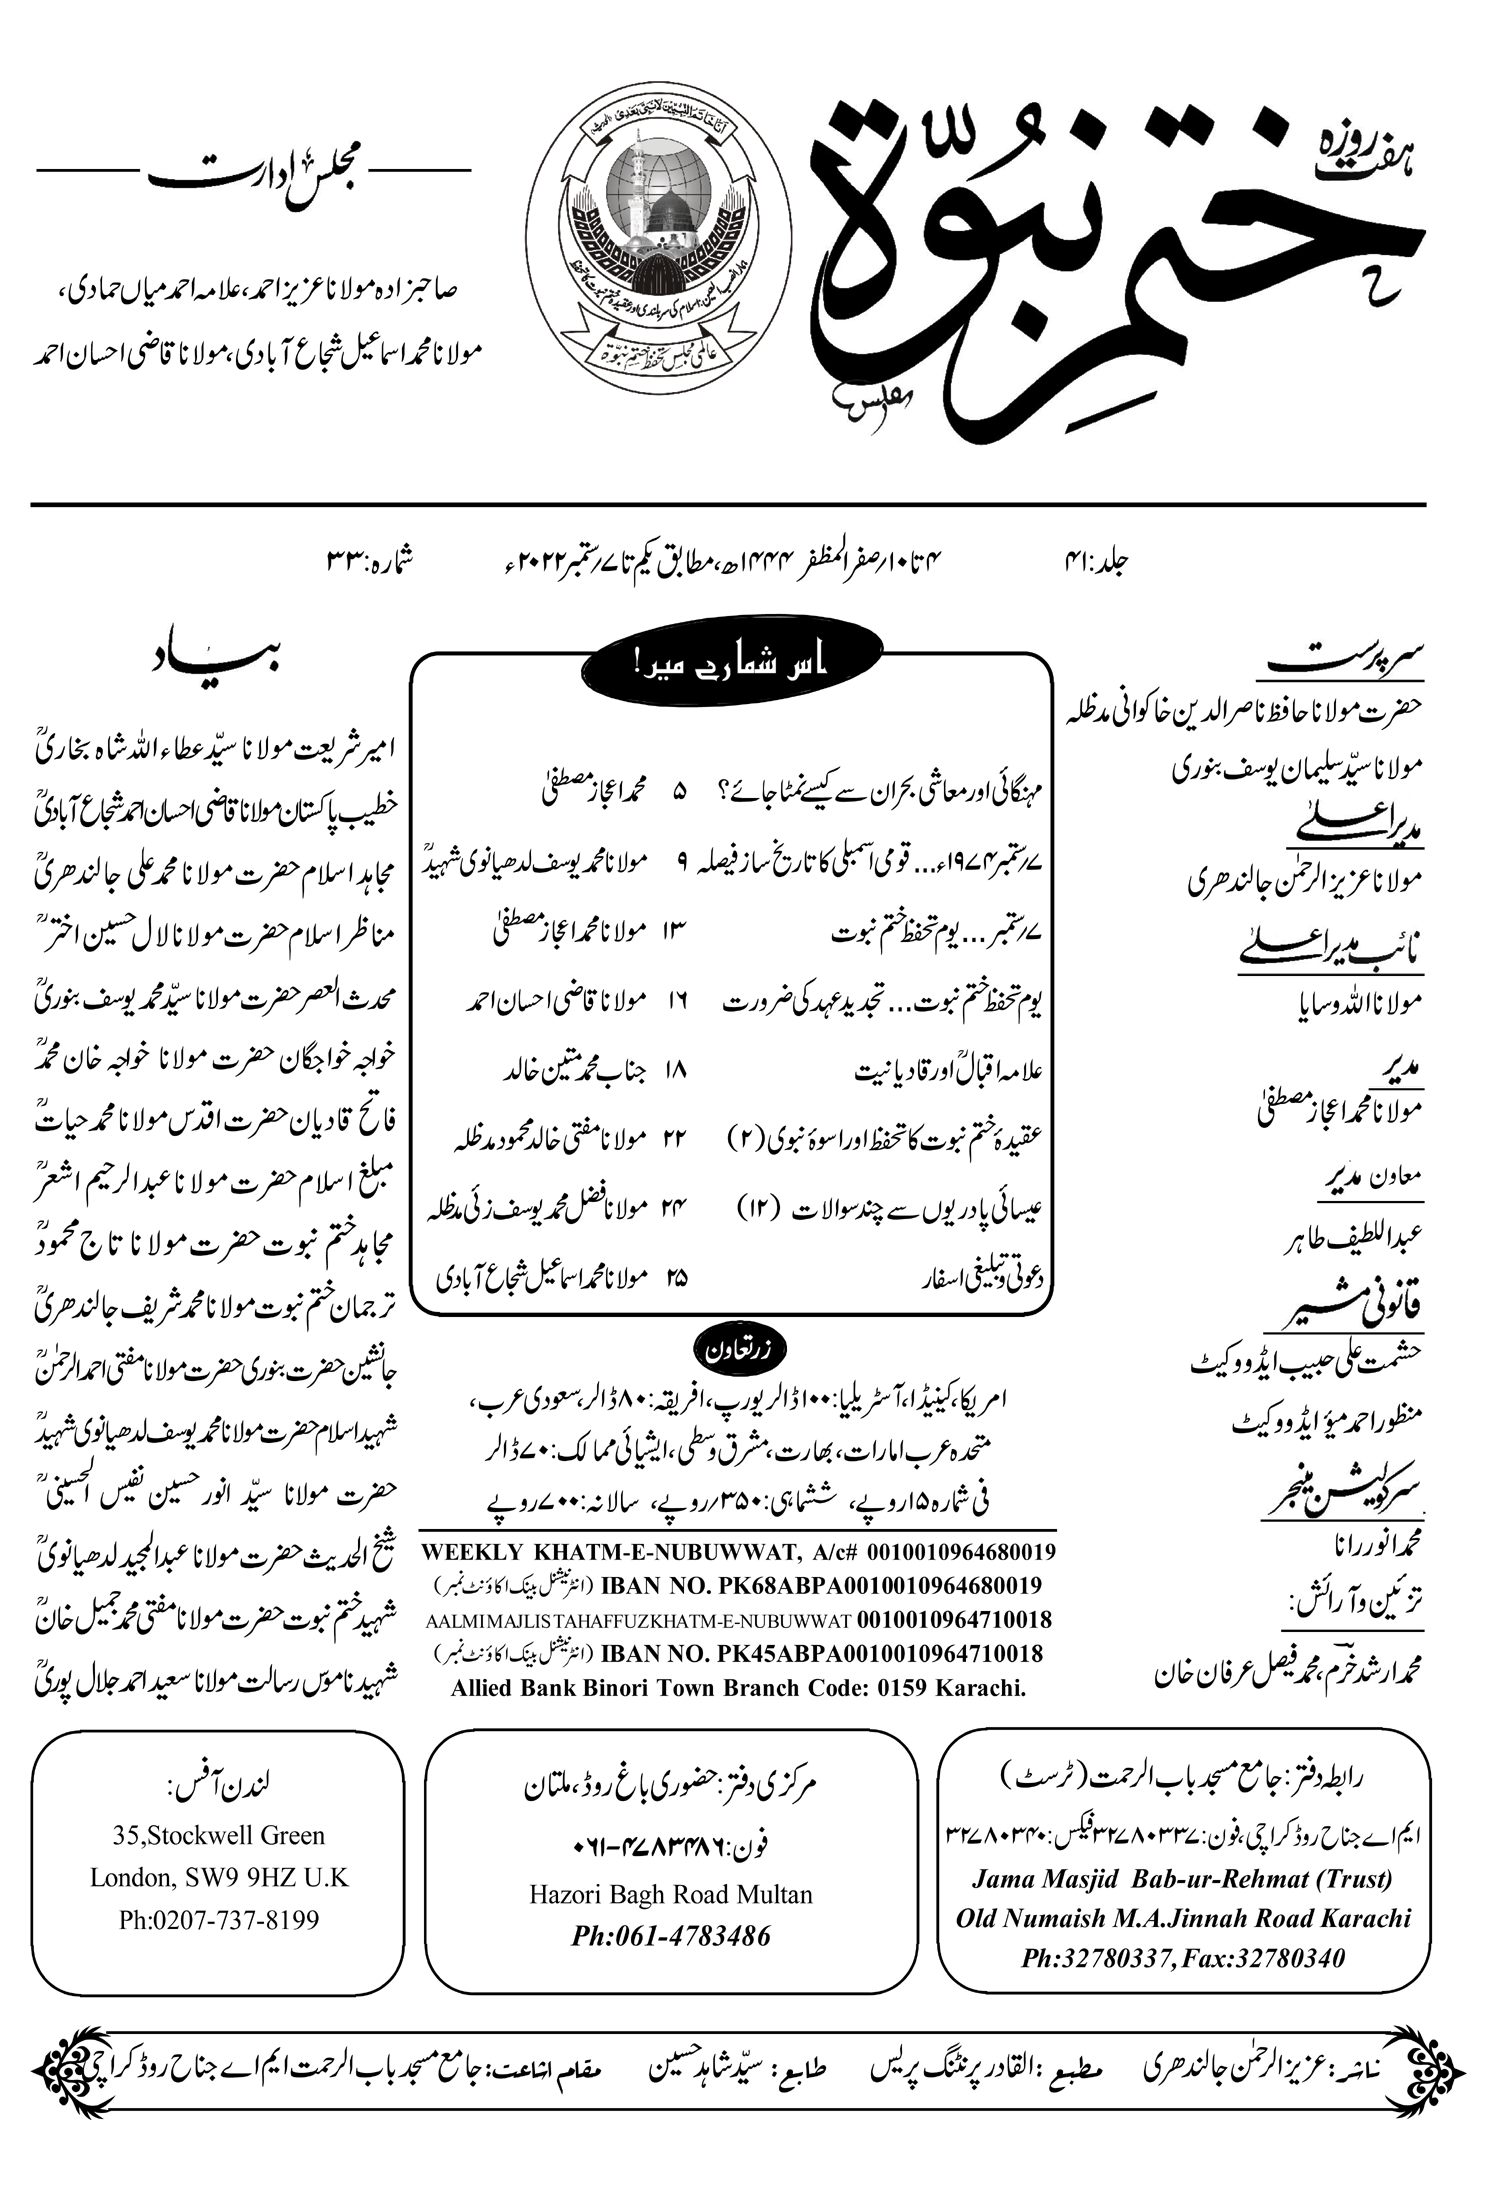 ہفت روزہ
ختم نبوّة
مجلس ادارت
صاحبزادہ مولانا عزیز احمد، علامہ احمد میاں حمادی،
مولانا محمد اسماعیل شجاع آبادی، مولانا قاضی احسان احمد
انا خاتم النبیین لا نبی بعدی
عالمی مجلس تحفظ ختم نبوّة
جلد: ۴۱
۴ تا ۱۰/صفر المظفر ۱۴۴۴ھ، مطابق یکم تا ۷/ستمبر ۲۰۲۲ء
شمارہ: ۳۳
سرپرست
حضرت مولانا حافظ ناصر الدین خاکوانی مدظلہ
مولانا سیّد سلیمان یوسف بنوری
مدیر اعلےٰ
مولانا عزیز الرحمٰن جالندھری
نائب مدیر اعلےٰ
مولانا اللہ وسایا
مدیر
مولانا محمد اعجاز مصطفیٰ
معاون مدیر
عبداللطیف طاہر
قانونی مشیر
حشمت علی حبیب ایڈووکیٹ
منظور احمد میؤ ایڈووکیٹ
سرکولیشن مینجر
محمد انور رانا
تزئین و آرائش:
محمد ارشد خرم، محمد فیصل عرفان خان
اس شمارے میں!
مہنگائی اور معاشی بحران سے کیسے نمٹا جائے؟ ۵ محمد اعجاز مصطفیٰ
۷/ستمبر ۱۹۷۴ء... قومی اسمبلی کا تاریخ ساز فیصلہ ۹ مولانا محمد یوسف لدھیانوی شہیدؒ
۷/ستمبر... یوم تحفظ ختم نبوت ۱۳ مولانا محمد اعجاز مصطفیٰ
یوم تحفظ ختم نبوت... تجدید عہد کی ضرورت ۱۶ مولانا قاضی احسان احمد
علامہ اقبالؒ اور قادیانیت ۱۸ جناب محمد متین خالد
عقیدۂ ختم نبوت کا تحفظ اور اسوۂ نبوی (۲) ۲۲ مولانا مفتی خالد محمود مدظلہ
عیسائی پادریوں سے چند سوالات (۱۲) ۲۴ مولانا فضل محمد یوسف زئی مدظلہ
دعوتی و تبلیغی اسفار ۲۵ مولانا محمد اسماعیل شجاع آبادی
زرتعاون
امریکا، کینیڈا، آسٹریلیا: ۱۰۰ ڈالر یورپ، افریقہ: ۸۰ ڈالر، سعودی عرب،
متحدہ عرب امارات، بھارت، مشرق وسطی، ایشیائی ممالک: ۷۰ ڈالر
فی شمارہ ۱۵ روپے، ششماہی: ۳۵۰/روپے، سالانہ: ۷۰۰ روپے
WEEKLY KHATM-E-NUBUWWAT, A/c# 0010010964680019
IBAN NO. PK68ABPA0010010964680019 (انٹرنیشنل بینک اکاؤنٹ نمبر)
AALMI MAJLIS TAHAFFUZ KHATM-E-NUBUWWAT 0010010964710018
IBAN NO. PK45ABPA0010010964710018 (انٹرنیشنل بینک اکاؤنٹ نمبر)
Allied Bank Binori Town Branch Code: 0159 Karachi.
بیاد
امیر شریعت مولانا سیّد عطاء اللہ شاہ بخاریؒ
خطیب پاکستان مولانا قاضی احسان احمد شجاع آبادیؒ
مجاہد اسلام حضرت مولانا محمد علی جالندھریؒ
مناظر اسلام حضرت مولانا لال حسین اخترؒ
محدث العصر حضرت مولانا سیّد محمد یوسف بنوریؒ
خواجہ خواجگان حضرت مولانا خواجہ خان محمدؒ
فاتح قادیان حضرت اقدس مولانا محمد حیاتؒ
مبلغ اسلام حضرت مولانا عبدالرحیم اشعرؒ
مجاہد ختم نبوت حضرت مولانا تاج محمودؒ
ترجمان ختم نبوت مولانا محمد شریف جالندھریؒ
جانشین حضرت بنوری حضرت مولانا مفتی احمد الرحمٰنؒ
شہید اسلام حضرت مولانا محمد یوسف لدھیانوی شہیدؒ
حضرت مولانا سیّد انور حسین نفیس الحسینیؒ
شیخ الحدیث حضرت مولانا عبدالمجید لدھیانویؒ
شہید ختم نبوت حضرت مولانا مفتی محمد جمیل خانؒ
شہید ناموس رسالت مولانا سعید احمد جلال پوریؒ
رابطہ دفتر: جامع مسجد باب الرحمت (ٹرسٹ)
ایم اے جناح روڈ کراچی، فون: ۳۲۷۸۰۳۳۷ فیکس: ۳۲۷۸۰۳۴۰
Jama Masjid Bab-ur-Rehmat (Trust)
Old Numaish M.A.Jinnah Road Karachi
Ph:32780337, Fax:32780340
مرکزی دفتر: حضوری باغ روڈ، ملتان
فون: ۰۶۱-۴۷۸۳۴۸۶
Hazori Bagh Road Multan
Ph:061-4783486
لندن آفس:
35,Stockwell Green
London, SW9 9HZ U.K
Ph:0207-737-8199
ناشر: عزیز الرحمٰن جالندھری مطبع: القادر پرنٹنگ پریس طابع: سیّد شاہد حسین مقام اشاعت: جامع مسجد باب الرحمت ایم اے جناح روڈ کراچی